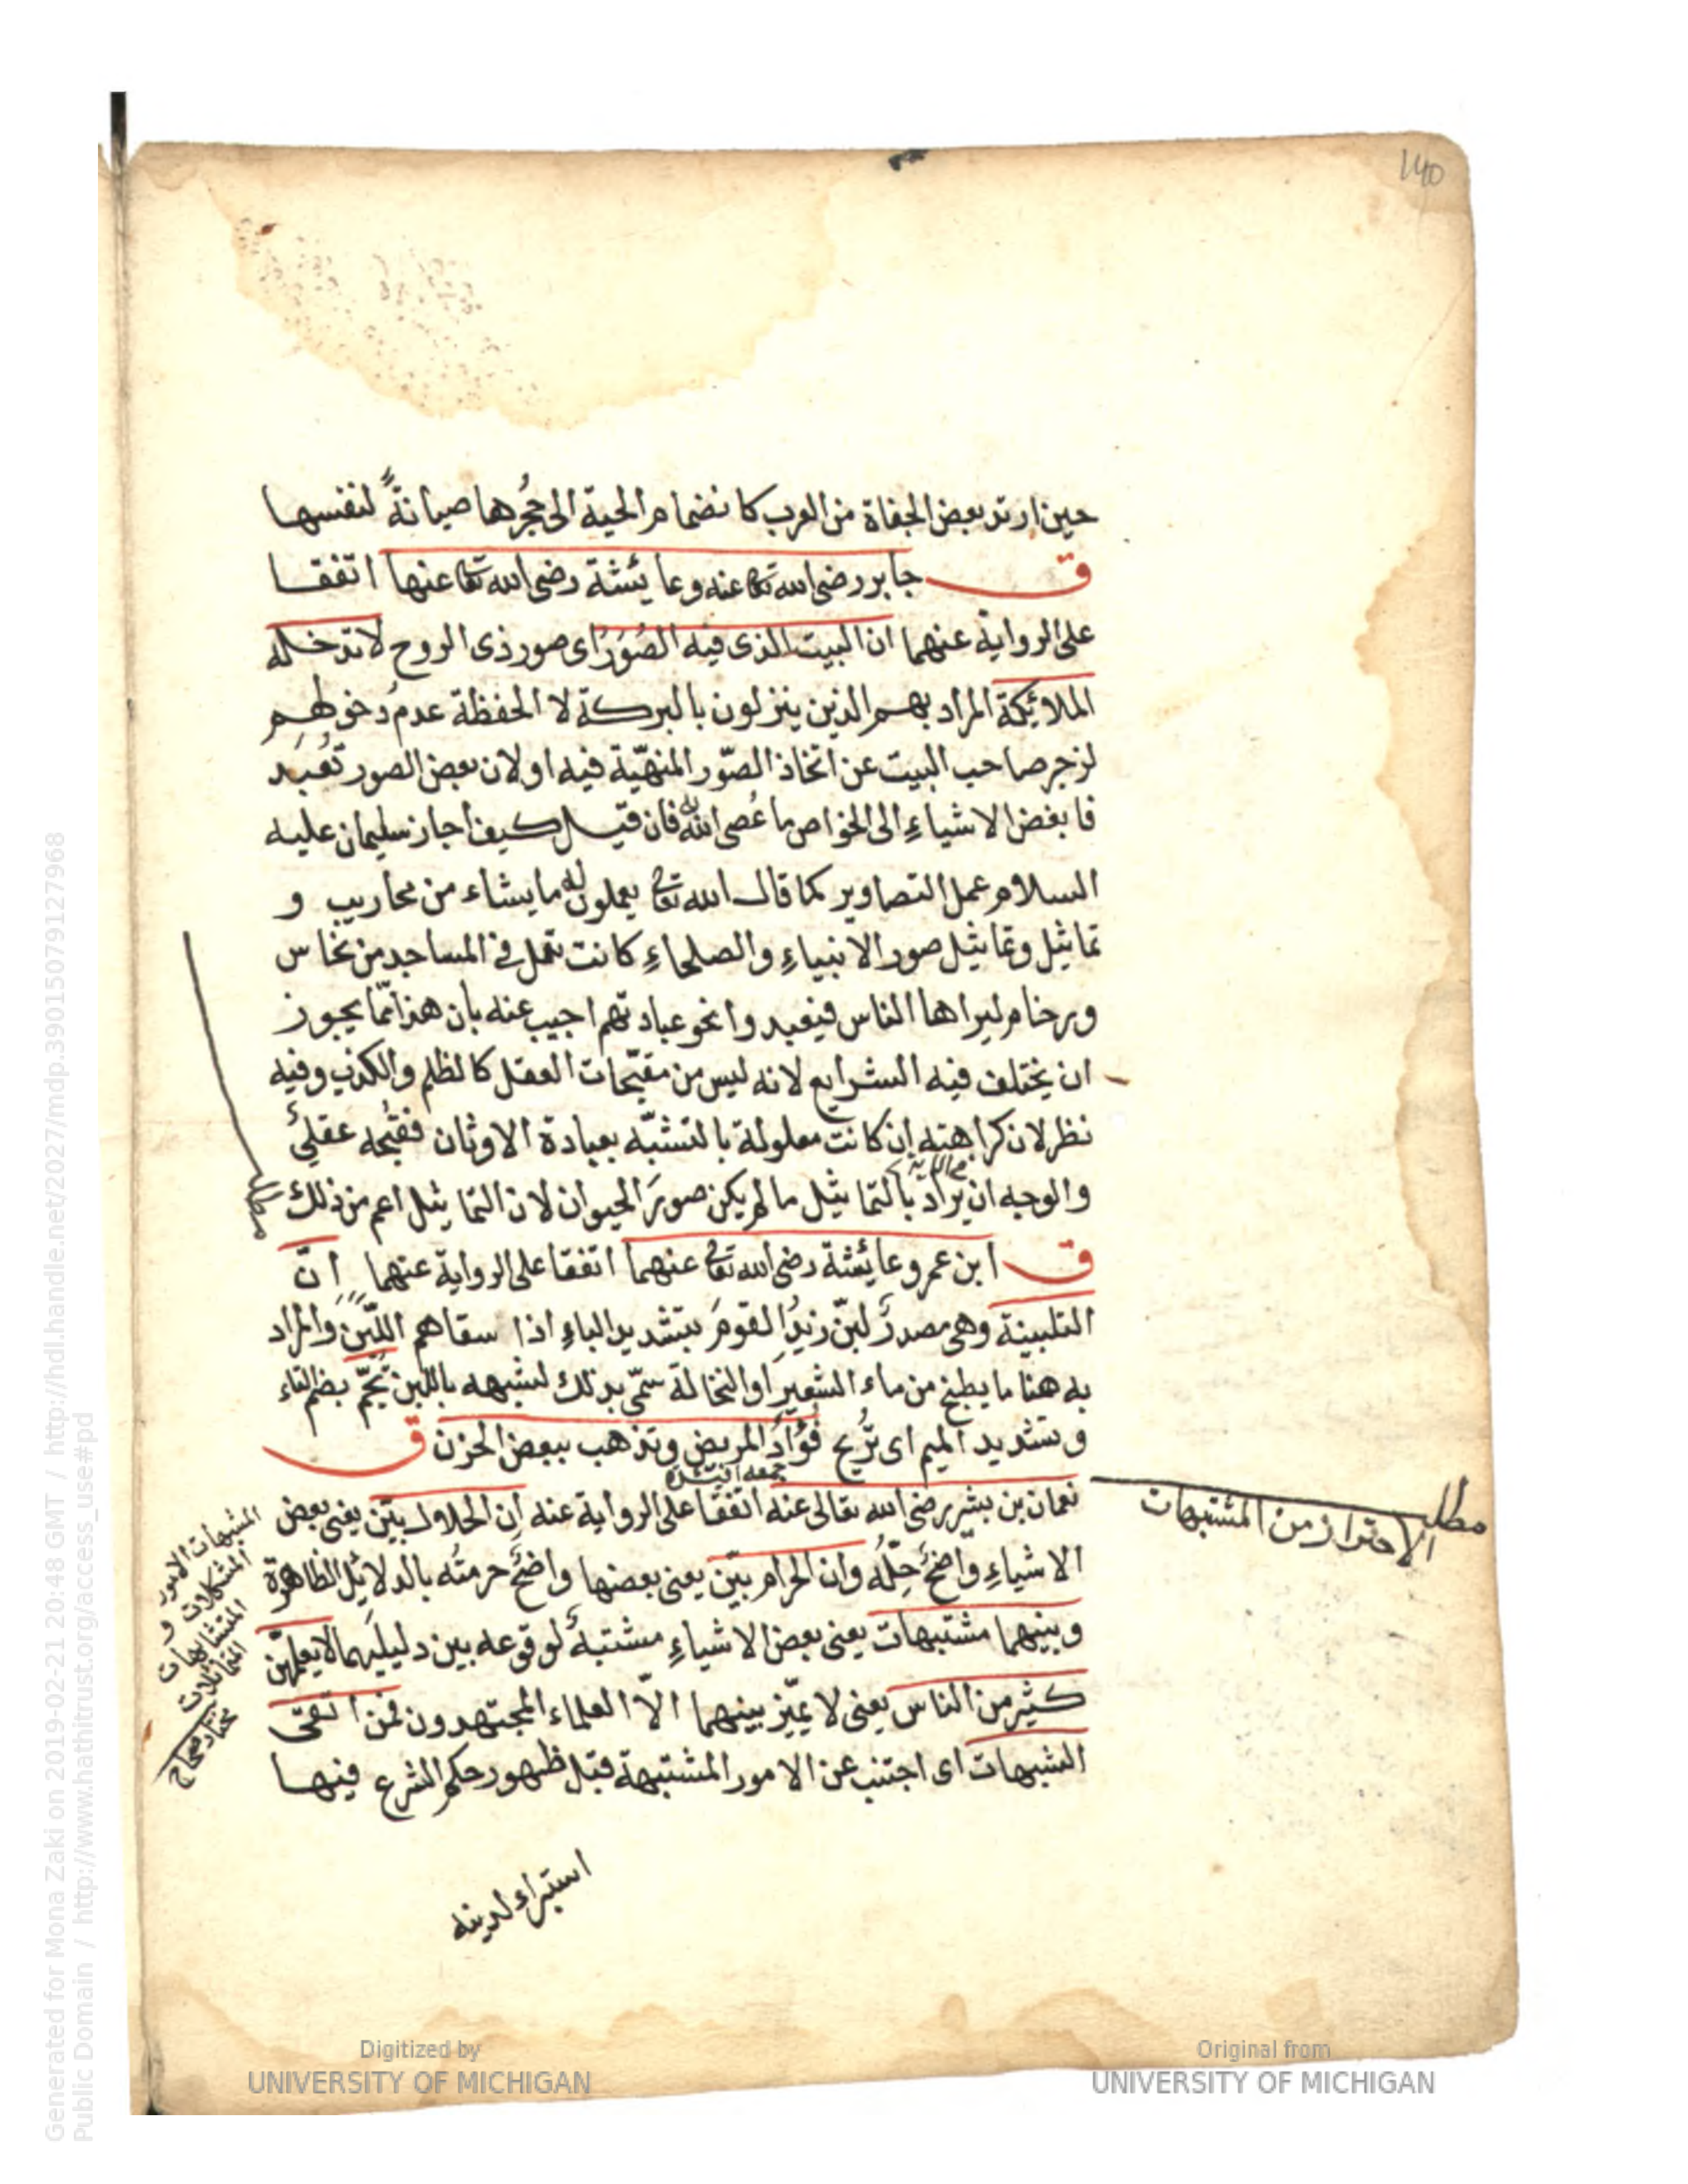 140
حين ارتد بعض الجفاة من العرب كانضمام الحية الى جُحرها صيانةً لنفسها
ق جابر رضى الله تعا عنه وعايئشة رضى الله تعا عنها اتفقا
على الرواية عنهما ان البيت الذى فيه الصُوَرُ اى صور ذى الروح لا تدخله
الملائيكة المراد بهم الذين ينزلون بالبركة لا الحفظة عدمُ دخولهم
لزجر صاحب البيت عن اتخاذ الصّور المنهيّة فيه او لان بعض الصور تُعبَد
فابغض الاشياءِ الى الخواص ما عُصى الله به فان قيل كيف اجاز سليمان عليه
السلام عمل التصاوير كما قال الله تعا يعملون له ما يشاء من محاريب و
تماثيل وتماثيل صور الانبياءِ والصلحاءِ كانت تعمل فى المساجد من نحاس
ورخام ليراها الناس فيعبدوا نحو عبادتهم اجيب عنه بان هذا ممّا يجوز
ان يختلف فيه الشرايع لانه ليس من مقبّحات العقل كالظلم والكذب وفيه
نظر لان كراهته ان كانت معلولة بالتشبّه بعبادة الاوثان فقبُحه عقلىٌ
والوجه ان يراد بالتماثيل ما لم يكن صورَ الحيوان لان التماثيل اعم من ذلك
ق ابن عمر وعائيشة رضى الله تعا عنهما اتفقا على الرواية عنهما انّ
التلبينة وهى مصدرُ لبّن زيدُ القومَ بتشديد الباءِ اذا سقاهم اللّبن والمراد
به هنا ما يطبخ من ماء الشعير او النخالة سمّى بذلك لشبهه باللبن تُجمّ بضم التاء
وتشديد الميم اى تُريح فُؤادَ المريض وتذهب ببعض الحزن ق
نعمان بن بشير رضى الله تعالى عنه اتفقا على الرواية عنه ان الحلال بيّن يعنى بعض
الاشياءِ واضحٌ حِلّهُ وان الحرام بيّن يعنى بعضها واضحٌ حرمتُه بالدلائل الظاهرة
وبينهما مشتبهات يعنى بعض الاشياءِ مشتبهٌ لوقوعه بين دليلَيهما لا يعلمهنّ
كثير من الناس يعنى لا يميّز بينهما الاّ العلماء المجتهدون فمن اتقى
الشبهات اى اجتنب عن الامور المشتبهة قبل ظهور حكم الشرع فيها
استبراء لدينه
مطلب
الاحتراز من المشتبهات
المشبهات الامور
المشكلات و
المتشابهات
المتماثلات
مختار صحاح
Generated for Mona Zaki on 2019-02-21 20:48 GMT / http://hdl.handle.net/2027/mdp.39015079127968
Public Domain / http://www.hathitrust.org/access_use#pd
Digitized by
UNIVERSITY OF MICHIGAN
Original from
UNIVERSITY OF MICHIGAN